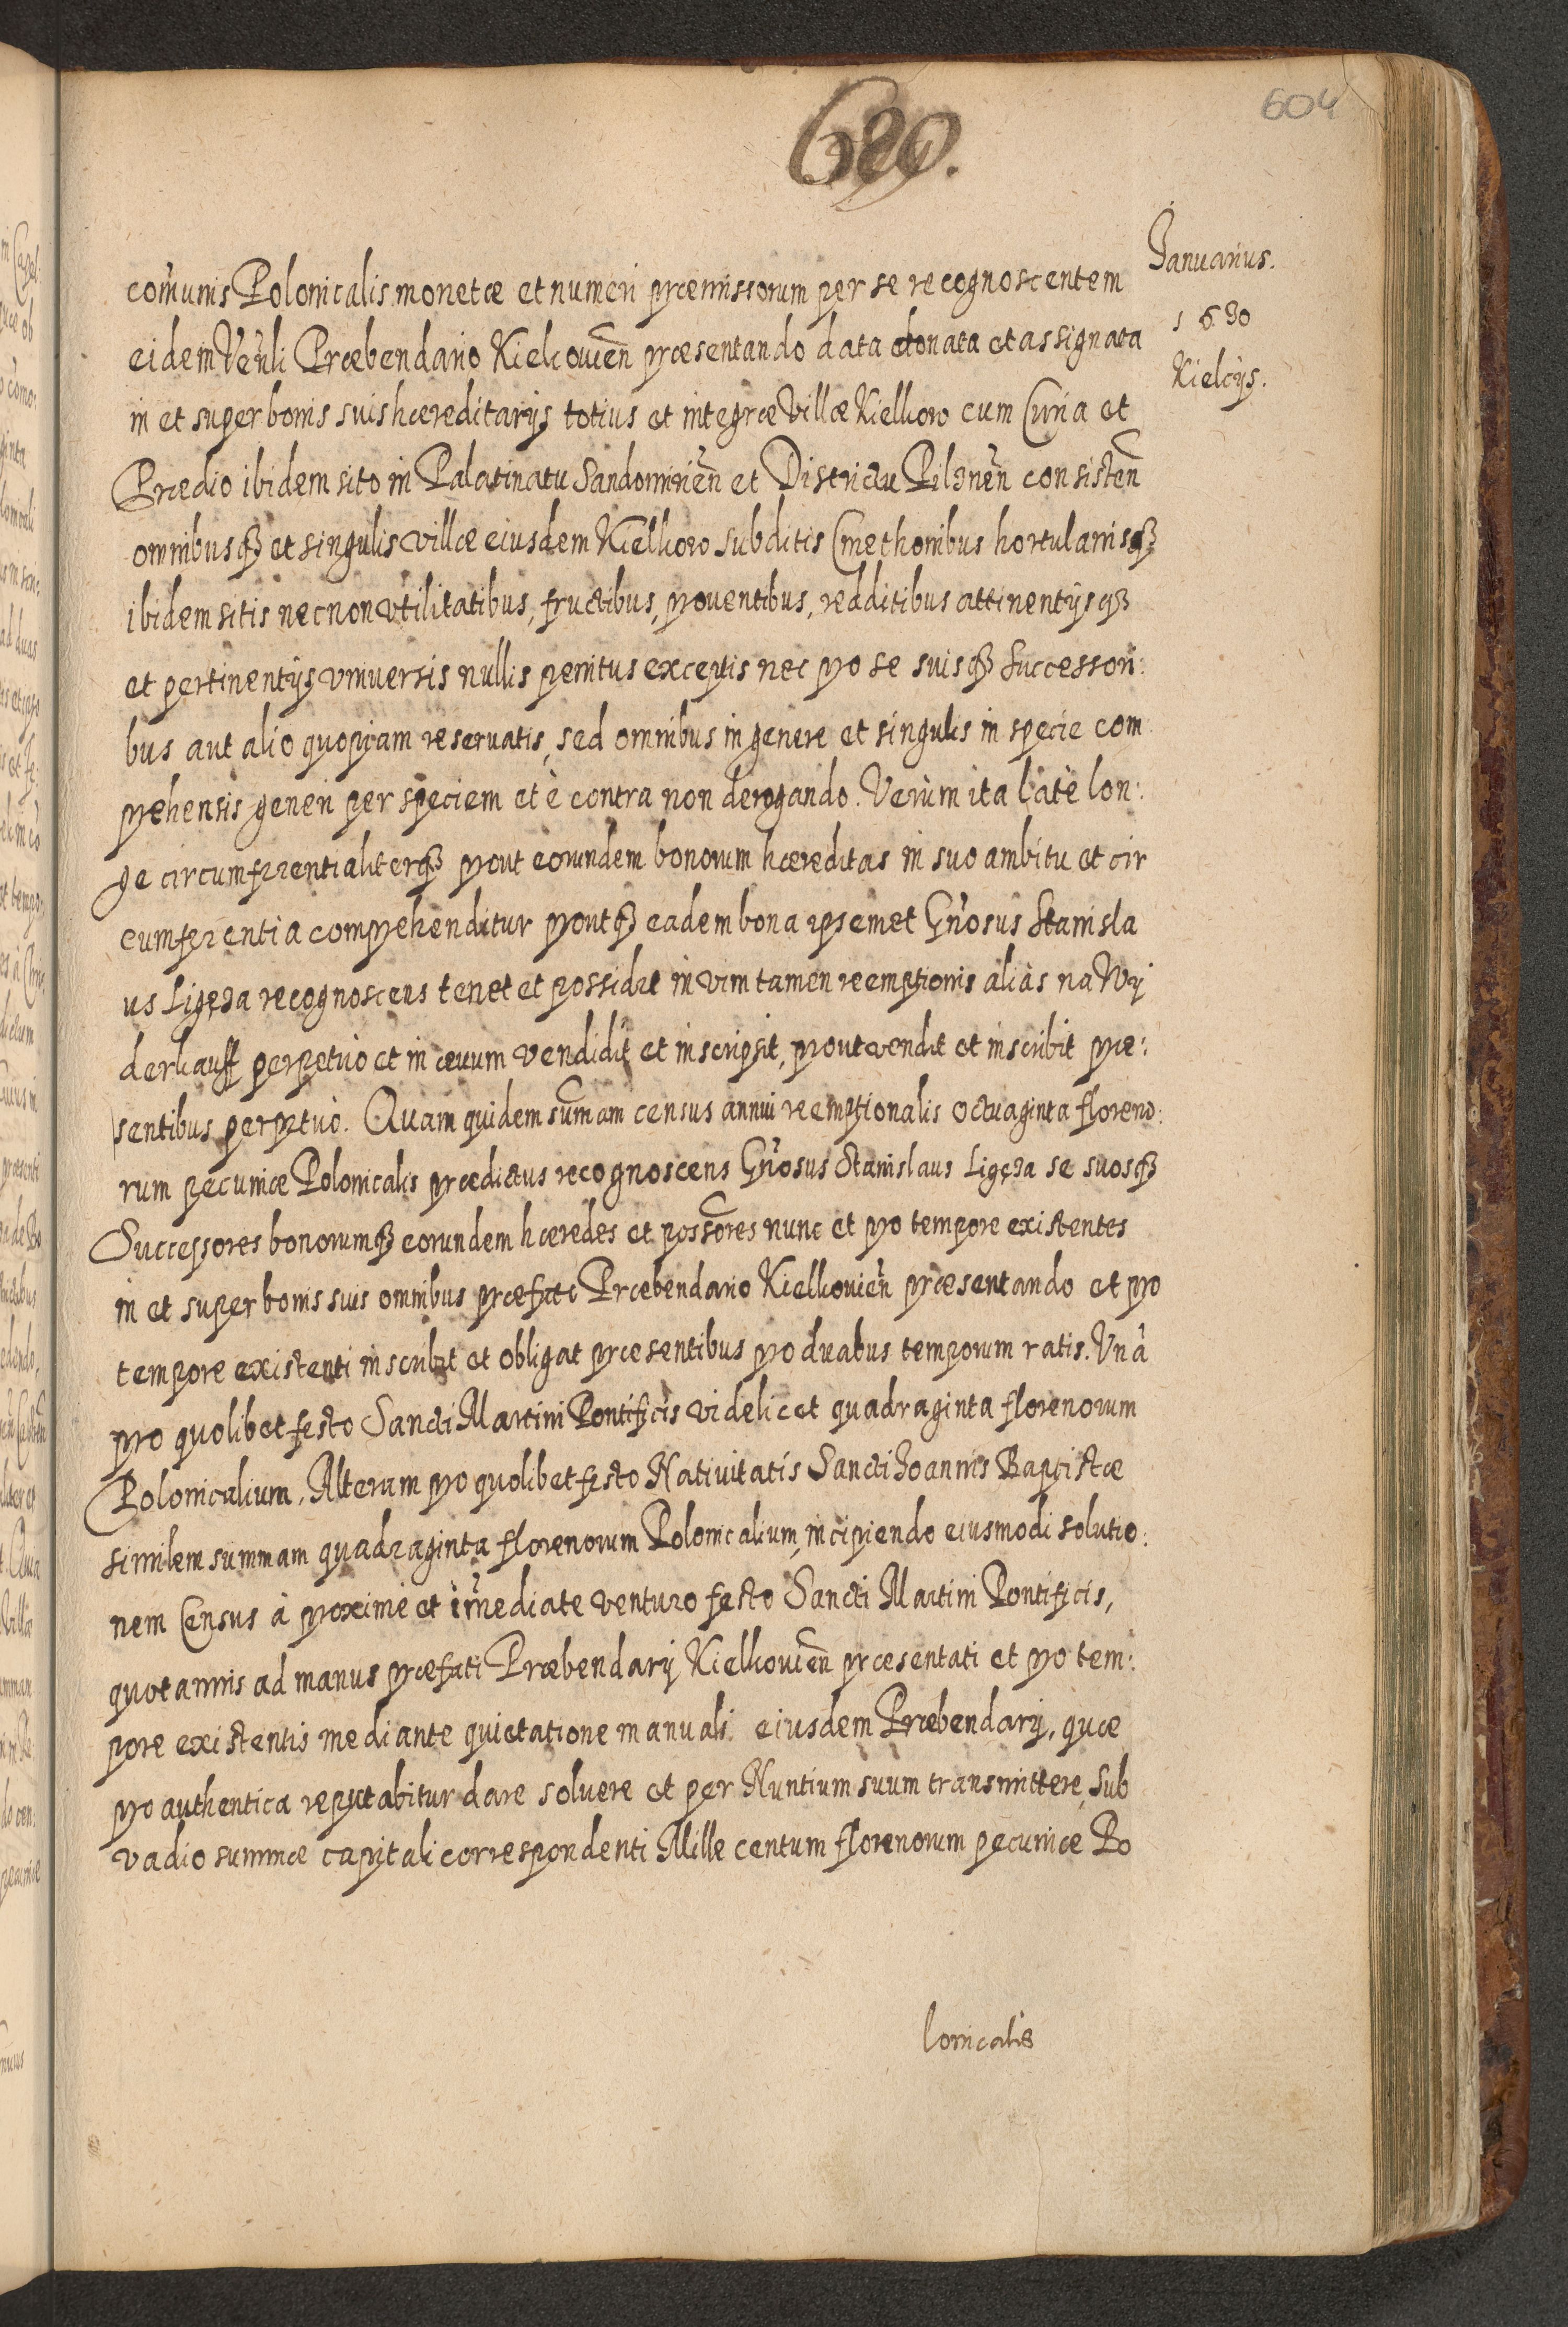 604
Januarius.
1690
Kielcijs.
com̃unis Polonicalis monetæ et numeri præmissorum per se recognoscentem
eidem Veñli Præbendario Kielcovien̄ præsentando data donata et assignata
in et super bonis suis hæreditarijs totius et integræ Villæ Kielkow cum Curia et
Prædio ibidem sito in Palatinatu Sandomirien̄ et Districtu Pilznen̄ consisten̄
omnibusq3 et singulis villæ eiusdem Kielkow subditis Cmethonibus hortulanisq3
ibidem sitis necnon vtilitatibus, fructibus, proventibus, redditibus attinentijsq3
et pertinentijs vniversis nullis penitus exceptis nec pro se suisq3 successori:
bus aut alio quopiam reservatis, sed omnibus in genere et singulis in specie com
prehensis generi per speciem et è contra non derogando. Verùm ita latè lon:
ge circumferentialiterq3 prout eorundem bonorum hæreditas in suo ambitu et cir
cumferentia comprehenditur proutq3 eadem bona ipsemet Gñosus Stanisla
us Ligęza recognoscens tenet et possidet in vim tamen reemptionis aliàs na Wy
derkauff perpetuo et in ævum vendidit et inscripsit, prout vendit et inscribit præ:
sentibus perpetuò. Quam quidem sum̃am census annui reemptionalis octuaginta floreno:
rum pecuniæ Polonicalis prædictus recognoscens Gñosus Stanislaus Ligęza se suosq3
Successores bonorumq3 eorundem hæredes et possõres nunc et pro tempore existentes
in et super bonis suis omnibus præfato Præbendario Kielkovien̄ præsentando et pro
tempore existenti inscribit et obligat præsentibus pro duabus temporum ratis. Vnâ
pro quolibet festo Sancti Martini Pontificis videlicet quadraginta florenorum
Polonicalium, Alteram pro quolibet festo Nativitatis Sancti Joannis Baptistæ
similem summam quadraginta florenorum Polonicalium, incipiendo eiusmodi solutio:
nem Census à proximè et im̃ediate venturo festo Sancti Martini Pontificis,
quotannis ad manus præfati Præbendarij Kielkovien̄ præsentati et pro tem:
pore existentis mediante quietatione manuali eiusdem Præbendarij, quæ
pro authentica reputabitur dare solvere et per Nuntium suum transmittere, sub
vadio summæ capitali correspondenti Mille centum florenorum pecuniæ Po
lonicalis